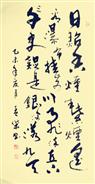 日照香炉生紫烟遥
看瀑布挂前川飞流直下三千
尺疑是银河落九天
乙未年夏月